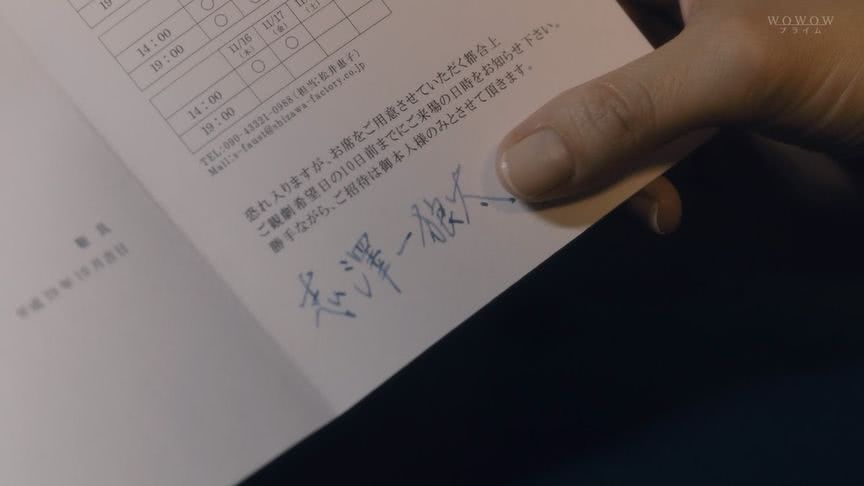 WOWOW
プライム
14：00
19：00
11/16
(木)
11/17
(金)
(土)
14：00
19：00
TEL:090-43321-0988(担当:松井恵子)
Mail:s-faust@shizawa-factory.co.jp
恐れ入りますが、お席をご用意させていただく都合上
ご観劇希望日の10日前までにご来場の日時をお知らせ下さい。
勝手ながら、ご招待は御本人様のみとさせて頂きます。
志澤一狼太
敬具